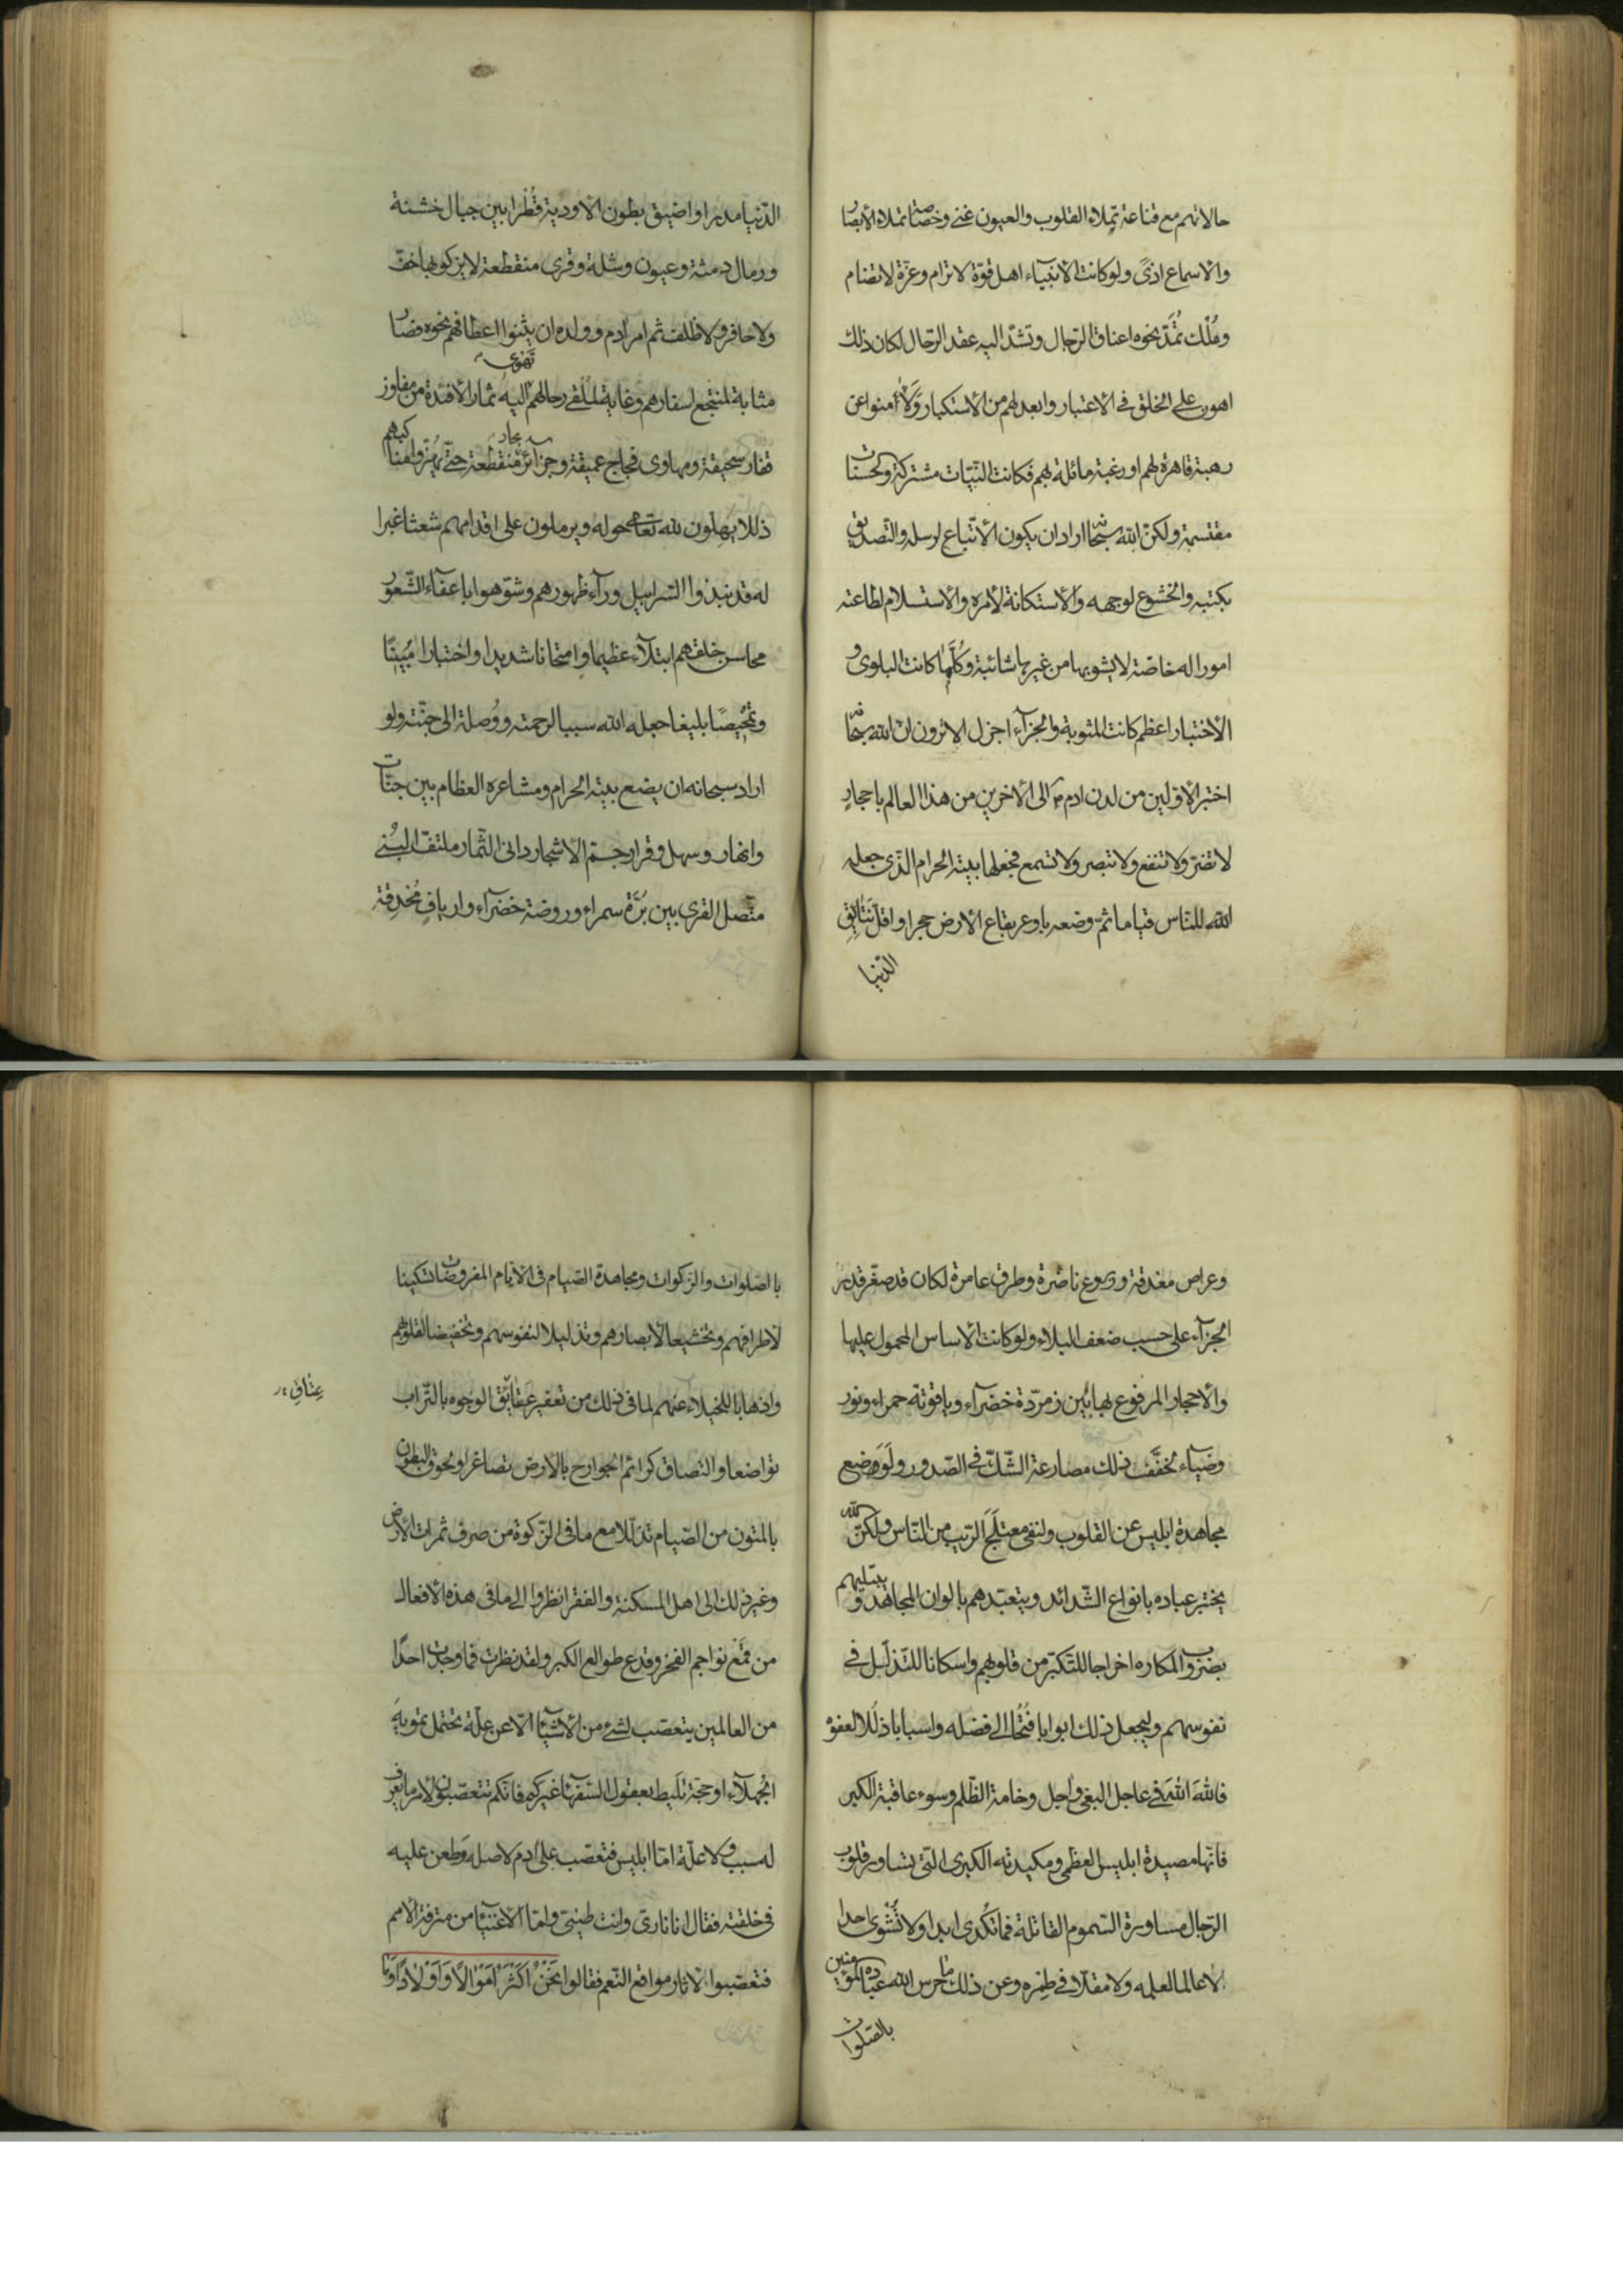 حالاتهم مع قناعة تملاء القلوب والعيون غنى وخصاصة تملاء الأبصار
والاسماع اذىً ولو كانت الانبياء اهل قوّة لا ترام وعزّة لا تضام
ومُلْك تُمَدّ نحوه اعناق الرّجال وتشدّ اليه عقد الرّحال لكان ذلك
اهون على الخلق فى الاعتبار وابعد لهم من الاستكبار ولَأٰمنوا عن
رهبة قاهرة لهم او رغبة مائلة بهم فكانت النيّات مشتركة والحسنات
مقتسمة ولكنّ الله سبحانه اراد ان يكون الاتّباع لرسله والتّصديق
بكتبه والخشوع لوجهه والاستكانة لامره والاستسلام لطاعته
امورا له خاصّة لا يشوبها من غيرها شائبة وكلّما كانت البلوى و
الاختبار اعظم كانت المثوبة والجزآء اجزل الا ترون انّ الله سبحانه
اختبر الاوّلين من لدن ادم ؑ الى الاخرين من هذا العالم باحجارٍ
لا تضرّ ولا تنفع ولا تبصر ولا تسمع فجعلها بيته الحرام الّذى جعله
الله للنّاس قياما ثمّ وضعه باوعر بقاع الارض حجرا واقلّ نتائق
الدّنيا
الدّنيا مدرا واضيق بطون الاودية قُطْرا بين جبال خشنة
ورمال دمثة وعيون وشلة وقرى منقطعة لا يزكو بها خفّ
ولا حافر ولا ظلف ثم امر آدم وولده ان يثنوا اعطافهم نحوه فصار
مثابة لمنتجع اسفارهم وغاية لملقى رحالهم تهوى اليه ثمار الافئدة من مفاوز
قفار سحيقة ومهاوى فجاج عميقة وجزائر بحار منقطعة حتّى يهزّوا مناكبهم
ذللا يهلّون لله تعالى حوله ويرملون على اقدامهم شعثا غبرا
له قد نبذوا السّرابيل ورآء ظهورهم وشوّهوا باعفآء الشّعور
محاسن خلقهم ابتلآء عظيما وامتحانا شديدا واختبارا مُبينًا
وتمحيصًا بليغا جعله الله سببا لرحمته ووُصلة الى جنّته ولو
اراد سبحانه ان يضع بيته الحرام ومشاعره العظام بين جنّات
وانهار وسهل وقرار جمّ الاشجار دانى الثّمار ملتفّ البُنى
متّصل القرى بين بُرّة سمراء وروضة خضرآء واريافٍ مُحْدِقة
وعراص مغدقة وزروع ناضرة وطرق عامرة لكان قد صغّر قدر
الجزآء على حسب ضعف البلاء ولو كانت الاساس المحمول عليها
والاحجار المرفوع بها بين زمرّدة خضرآء وياقوتة حمراء ونور
وضيآء لخفّف ذلك مصارعة الشّكّ فى الصّدور ولَوَضع
مجاهدة ابليس عن القلوب ولنفى معتلَج الرّيب من النّاس ولكنّ الله
يختبر عباده بانواع الشّدائد ويتعبّدهم بالوان المجاهد ويبتليهم
بضروب المكاره اخراجا للتّكبّر من قلوبهم واسكانا للتّذلّل فى
نفوسهم وليجعل ذلك ابوابا فُتُحا الى فضله واسبابا ذللا لعفوه
فاللهَ اللهَ فى عاجل البغى واجل وخامة الظّلم وسوء عاقبة الكبر
فانّها مصيدة ابليس العظمى ومكيدته الكبرى الّتى تساور قلوب
الرّجال مساورة السّموم القاتلة فما تُكدى ابدا ولا تُشْوى احدا
لا عالما لعلمه ولا مقلّا فى طِمْره وعن ذلك ما حرس الله عباده المؤمنين
بالصّلوات
بالصّلوات والزّكوات ومجاهدة الصّيام فى الايّام المفروضات تسكينا
لاطرافهم وتخشيعا لابصارهم وتذليلا لنفوسهم وتخفيضا لقلوبهم
واذهابا للخيلاء عنهم لما فى ذلك من تعفير عتائق الوجوه بالتّراب
عِتاقِ
تواضعا والتصاق كرائم الجوارح بالارض تصاغرا ولحوق البطون
بالمتون من الصّيام تذلّلا مع ما فى الزّكوة من صرف ثمرات الارض
وغير ذلك الى اهل المسكنة والفقر انظروا الى ما فى هذه الافعال
من قَمْع نواجم الفخر وقدع طوالع الكبر ولقد نظرت فما وجدت احدًا
من العالمين يتعصّب لشئ من الاشيآء الّا عن علّة تحتمل تمويه
الجهلآء او حجّة تليط بعقول السّفهاء غيركم فانّكم تتعصّبون لامر ما يعرف
له سبب ولا علّة امّا ابليس فتعصّب على ادم لاصله وطعن عليه
فى خلقته فقال انا نارىّ وانت طينىّ وامّا الاغنيآء من مترفة الامم
فتعصّبوا لاثار مواقع النّعم فقالوا نَحْنُ اَكْثَرُ اَمْوَالًا وَاَوْلَادًا وَمَا